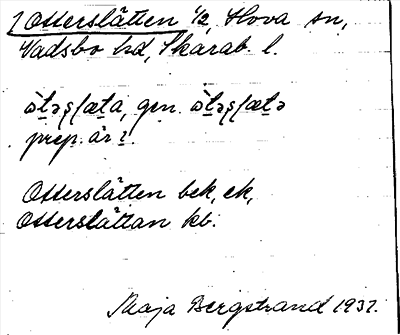 1 Otterslätten 1/2, Hova sn,
Vadsbo hd, Skarab. l.
prep. är i.
Otterslätten bek, ek,
Otterslättan kb.
Maja Bergstrand 1931.